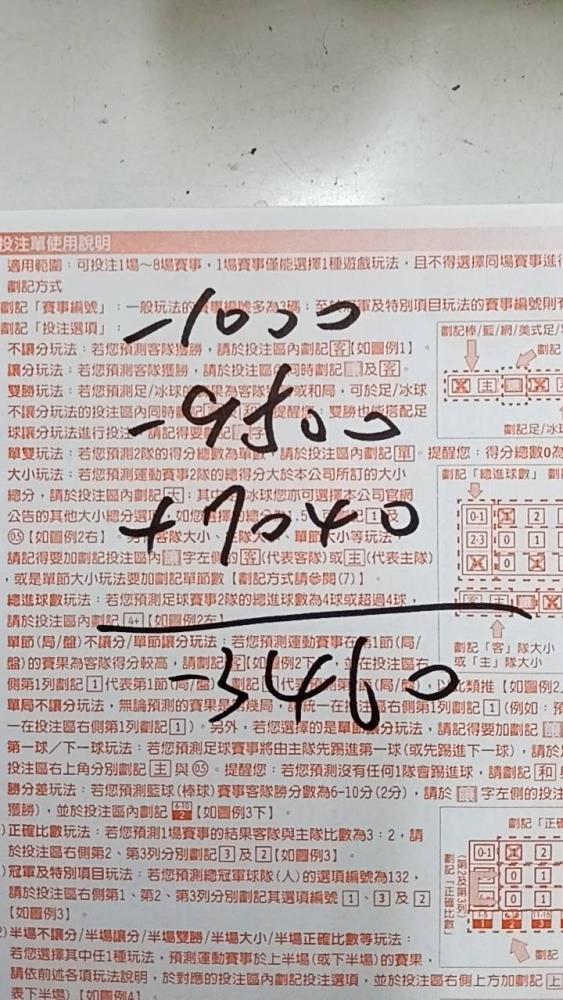 投注單使用說明
適用範圍：可投注1場～8場賽事，1場賽事僅能選擇1種遊戲玩法，且不得選擇同場賽事進行
劃記方式
劃記「賽事編號」：一般玩法的賽事編號多為3碼；至於冠軍及特別項目玩法的賽事編號則
劃記「投注選項」：
-1000
不讓分玩法：若您預測客隊獲勝，請於投注區內劃記客【如圖例1】
讓分玩法：若您預測客隊獲勝，請於投注區內同時劃記讓及客。
雙勝玩法：若您預測足/冰球的賽果為客隊勝或和局，可於足/冰球
-9500
不讓分玩法的投注區內同時劃記 和 提醒您：雙勝也能搭配足
球讓分玩法進行投注，請記得要劃記 字
單雙玩法：若您預測2隊的得分總數為單數，請於投注區內劃記單。提醒您：得分總數0為
大小玩法：若您預測運動賽事2隊的總得分大於本公司所訂的大小
總分，請於投注區內劃記大；其中 冰球您亦可選擇本公司官網
+7040
公告的其他大小總分選項，如您選擇的總分為1.5 劃記1及
05【如圖例2右】。 客隊大小、主隊大 單節大小等玩法
請記得要加劃記投注區內 字左側的客(代表客隊)或主(代表主隊)
，或是單節大小玩法要加劃記單節數【劃記方式請參閱(7)】
總進球數玩法：若您預測足球賽事2隊的總進球數為4球或超過4球，
請於投注區內劃記4+【如圖例2左】
-3460
單節(局/盤)不讓分/單節讓分玩法：若您預測運動賽事在第1節(局/
盤)的賽果為客隊得分較高，請劃記客【如圖例2下】，並在投注區右
側第1列劃記1代表第1節(局/盤)，劃記 代表預測第 節(局/盤)，以此類推【如圖例2
單局不讓分玩法，無論預測的賽果是第幾局，請統一在投注區右側第1列劃記1(例如：預
一在投注區右側第1列劃記1)。另外，若您選擇的是單節讓分玩法，請記得要加劃記
第一球／下一球玩法：若您預測足球賽事將由主隊先踢進第一球(或先踢進下一球)，請於
投注區右上角分別劃記主與05。提醒您：若您預測沒有任何1隊會踢進球，請劃記和
勝分差玩法：若您預測籃球(棒球)賽事客隊勝分數為6-10分(2分)，請於 字左側的投注
獲勝)，並於投注區內劃記 6-10 2【如圖例3下】
)正確比數玩法：若您預測1場賽事的結果客隊與主隊比數為3：2，請
於投注區右側第2、第3列分別劃記3及2【如圖例3】。
)冠軍及特別項目玩法：若您預測總冠軍球隊(人)的選項編號為132，
請於投注區右側第1、第2、第3列分別劃記其選項編號1、3及2
【如圖例3】
2)半場不讓分/半場讓分/半場雙勝/半場大小/半場正確比數等玩法：
若您選擇其中任1種玩法，預測運動賽事於上半場(或下半場)的賽果，
請依前述各項玩法說明，於對應的投注區內劃記投注選項，並於投注區右側上方加劃記上
表下半場)【如圖例4】
劃記棒/籃/網/美式足
劃記
主
劃記足/冰
劃記「總進球數」 劃
0-1 0 2
2-3 0 1
0 1
劃記「客」隊大小
或「主」隊大小
劃記「正確
劃記「正確比數」
(第2及第3列)
0-1 2
0 1
0 1
1-5 6-10 11-15
1 2 3
劃記